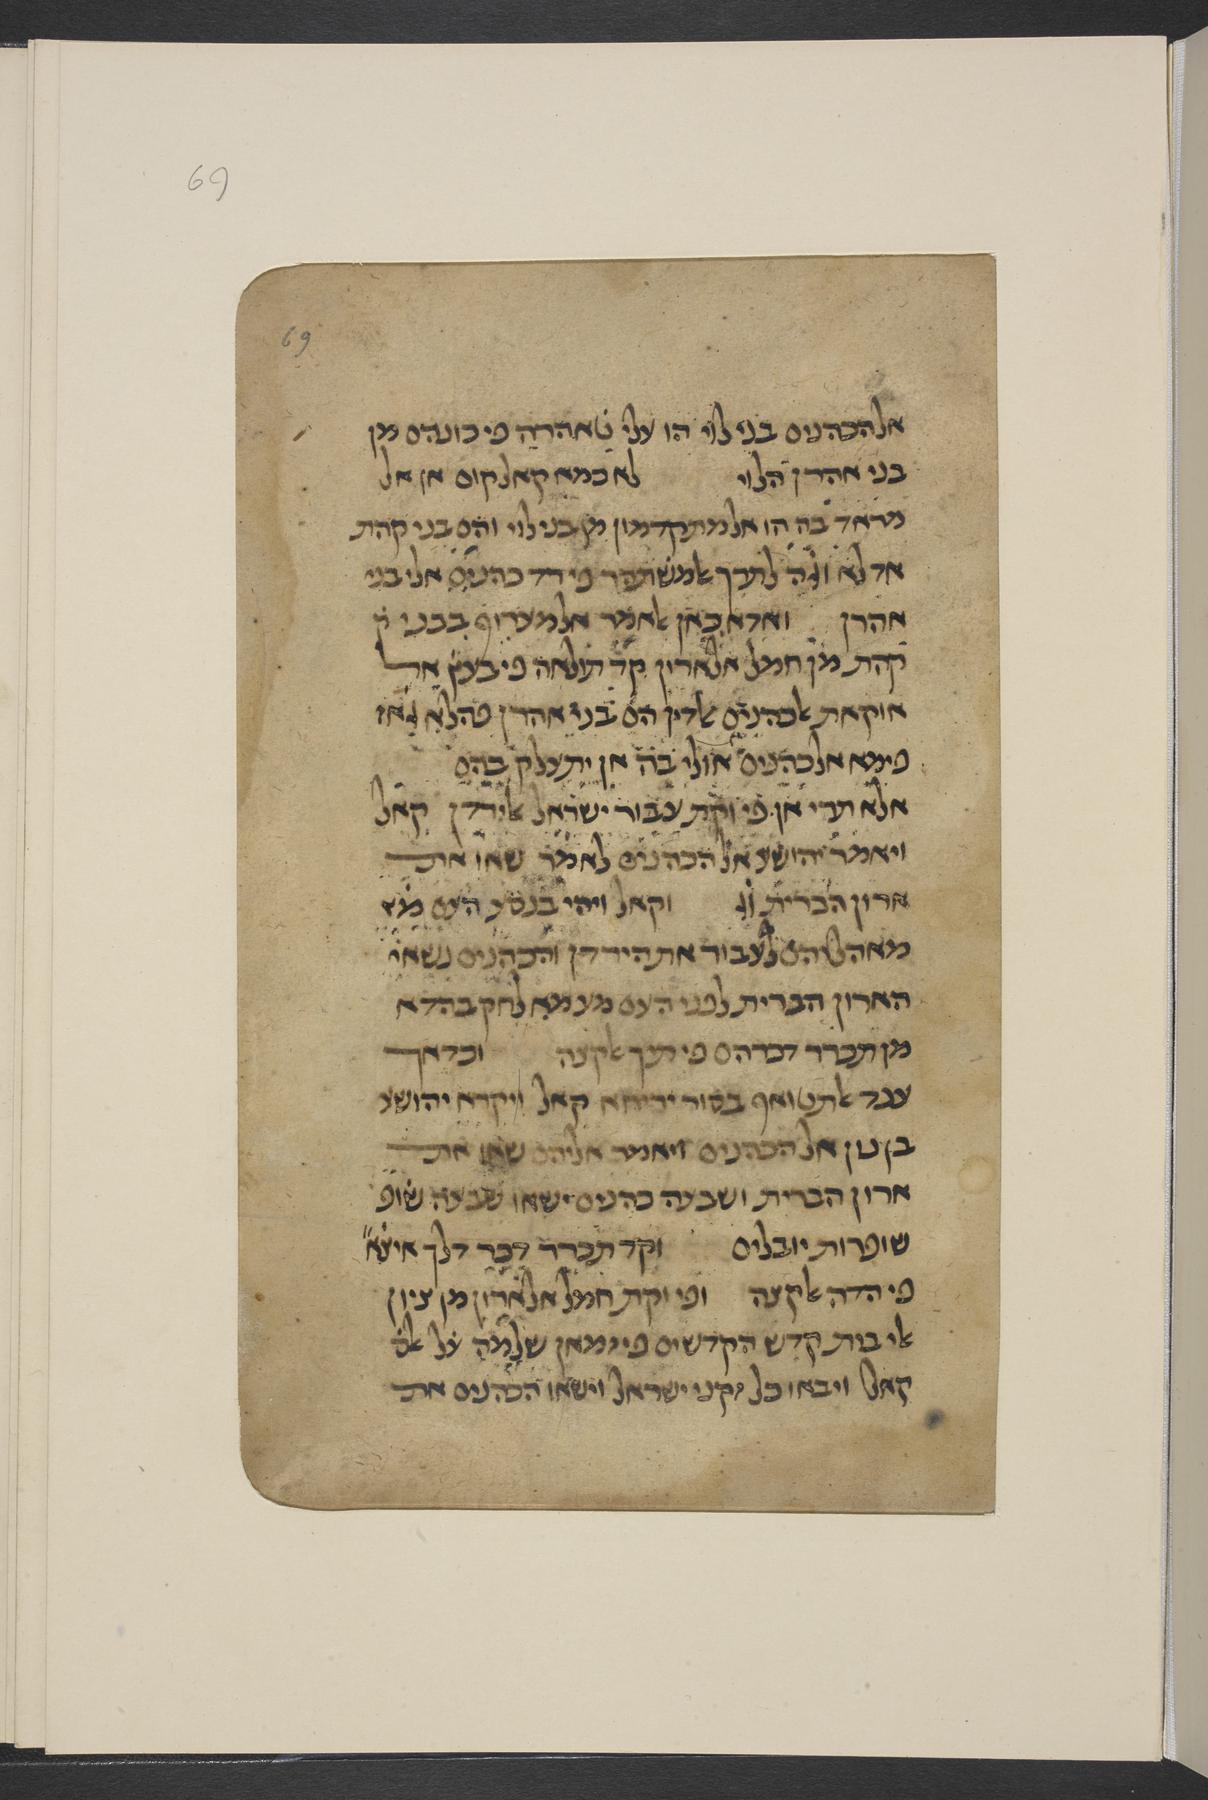 69
69
אלהכהנים בני לוי הו עלי טׄאהרה פי כונהם מן
בני אהרן הלוי לא כמא קאל קום אן אל
מראד בה הו אלמתקדמון מן בני לוי והם בני קהת
אד לא וגׄה לתרך אלמשתהר פי דׄכר כהנים אלי בני
אהרן ואדׄא כאן אלאמר אלמערוף בבני ק
קהת מן חמל אלארון קד תולאה פי בעץׄ אל
אוקאת אלכהנים אלדׄין הם בני אהרן פהלא גׄאז
פימא אלכהנים אולי בה אן יתעלק בהם
אלא תרי אן פי וקת עבור ישראל אלירדן קאל
ויאמר יהושע אל הכהנים לאמר שאו את
ארון הברית וגׄ וקאל ויהי בנסע העם מא
מאהליהם לעבור את הירדן והכהנים נשאי
הארון הברית לפני העם מע מא לחק בהדׄא
מן תכרר דׄכרהם פי תלך אלקצה וכדׄאך
ענד אלתטואף בסור יריחא קאל ויקרא יהושע
בן נון אל הכהנים ויאמר אליהם שאו את
ארון הברית ושבעה כהנים ישאו שבעה שופ
שופרות יובלים וקד תכרר דׄכר דׄלך איצׄא
פי הדׄה אלקצה ופי וקת חמל אלארון מן ציון
אלי בית קדש הקדשים פי זמאן שלמה על אלס
קאל ויבאו כל זקני ישראל וישאו הכהנים את